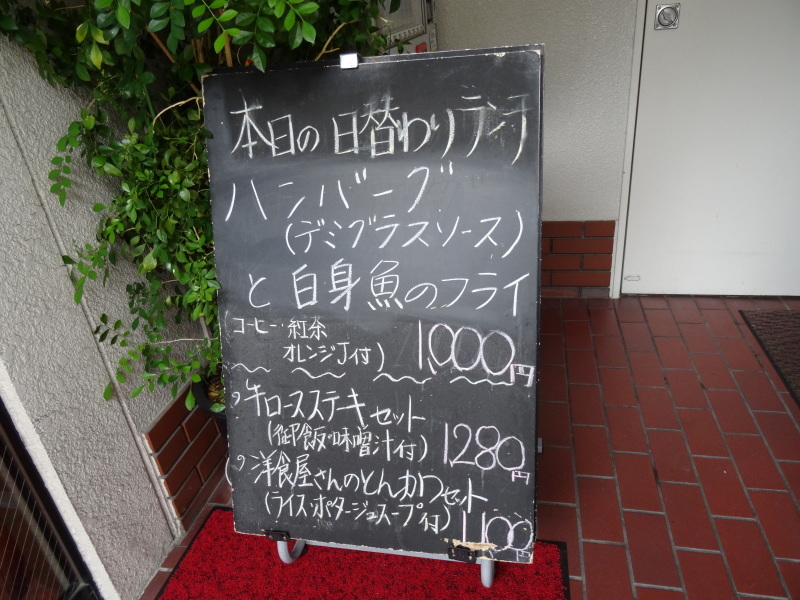 本日の日替わりランチ
ハンバーグ
(デミグラスソース)
と白身魚のフライ
(コーヒー・紅茶
オレンジJ付) 1,000円
牛ロースステキセット
(御飯・味噌汁付) 1280円
洋食屋さんのとんかつセット
(ライス・ポタージュスープ付) 1,100円